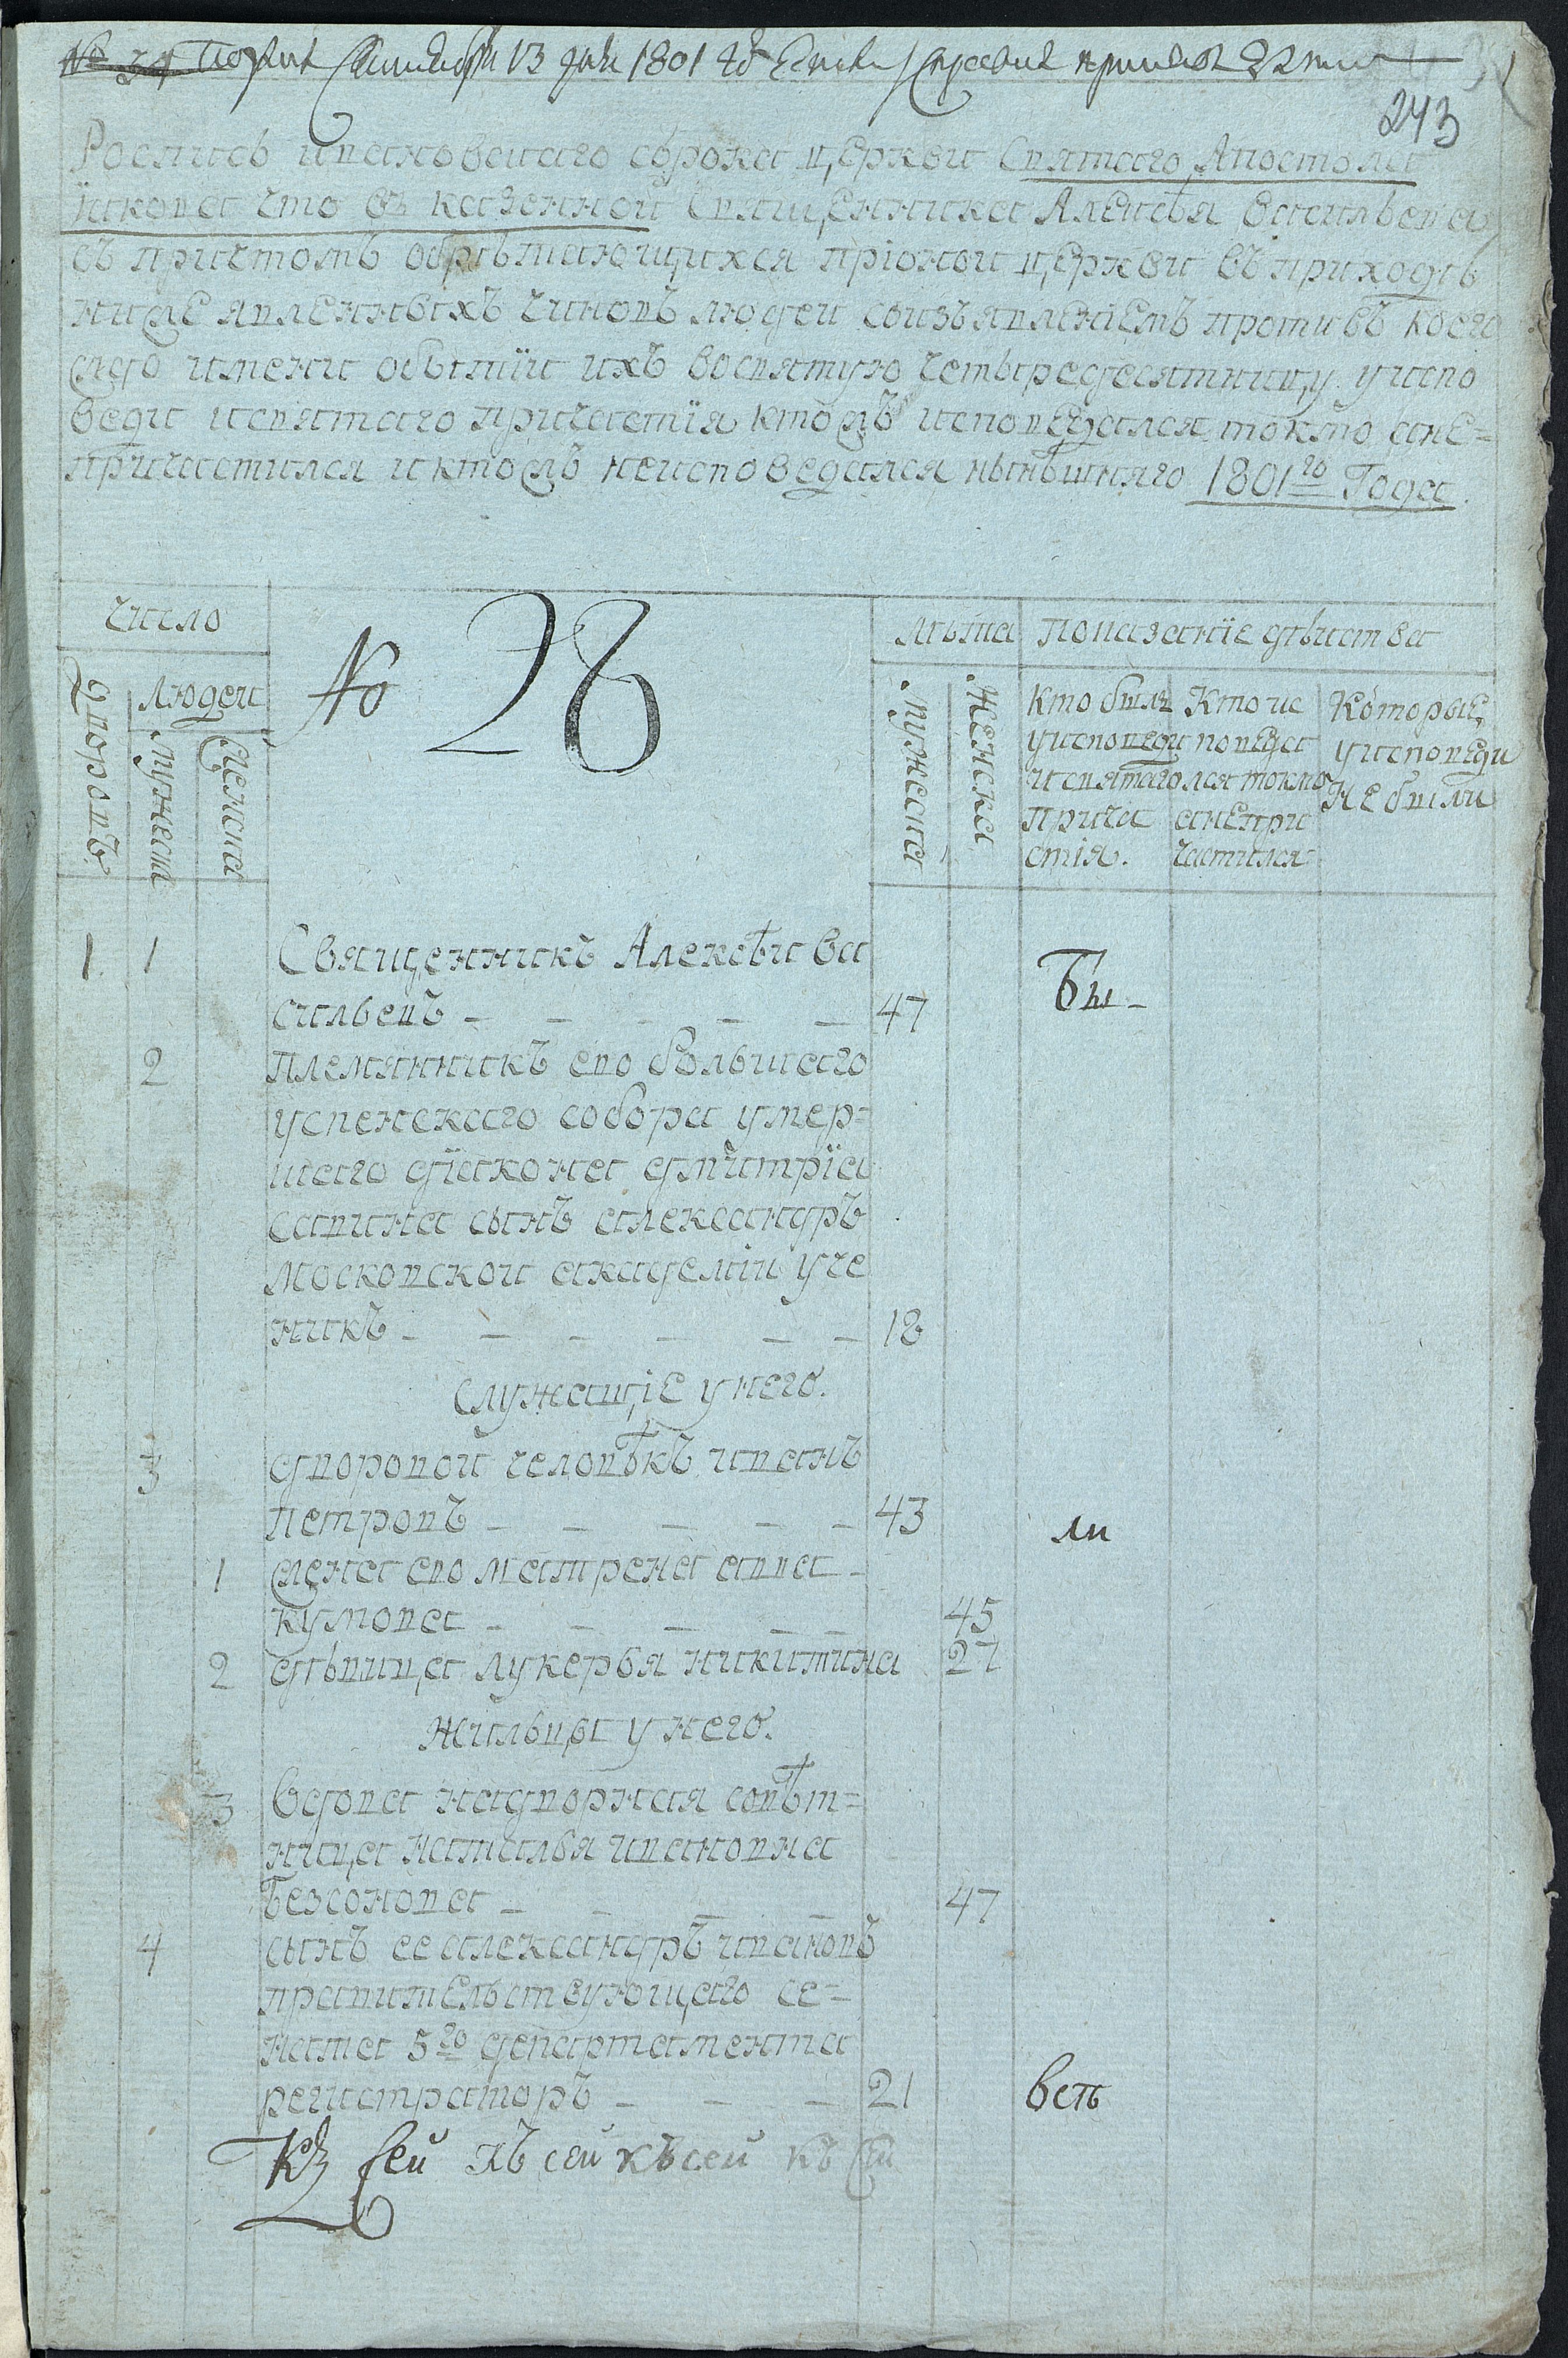 № 34 13 дня 1801 го
243
Роспись ивановскаго сорока церкви Святаго Апостола
Иякова что въ казенной Священника Алексѣя Васильева
съ притчтомъ обрѣтающихся прионой церкви въ приходѣ
нижеявленныхъ чиновъ людей соизъявленіемъ противъ коего
ждо имени обытіи ихъ восвятую четыредесятницу уиспо
веди исвятаго причастія ктожъ исповедался токмо ане=
причастился иктожъ неисповедался нынѣшняго 1801го Года.
число
№ 28
лѣта
показаніе дѣиства
дворовъ
людеи
мужеска
женска
мужеска
женска
кто былъ
уисповеди
исвятаго
прича
стія.
Кто ис
поведа
лся токмо
анепри
частился
Которые
уисповеди
не были
1 1 Священникъ Алексѣи Ва
сильевъ – – – – – 47 Бы –
2 племянникъ ево большаго
успенскаго собора умер=
шаго діякона дмитріа
савина сынъ александръ
московской академіи уче
никъ – – – – – – 18
служащіе у него.
3 дворовой человѣкъ иванъ
петровъ – – – – – 43 ли
1 жена ево матрена авва
кумова – – – – – 45
2 дѣвица лукерья никитина 27
жильцы у него.
3 вдова надворная совѣт=
ница наталья ивановна
Безсонова – – – – 47
4 сынъ ее александръ ивановъ
правительствующаго се=
ната 5го департамента
регистраторъ – – – 21 всть
Къ сеи къ сеи къ сеи къ сей